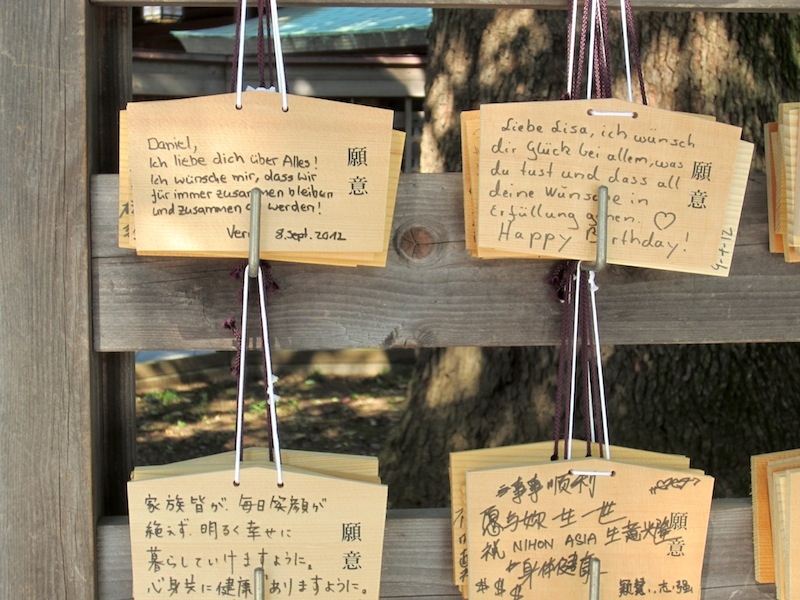 Daniel,
Ich liebe dich über Alles!
Ich wünsche mir, dass wir
für immer zusammen bleiben
und zusammen werden!
8. Sept. 2012
願意
Liebe Lisa, ich wünsch
dir Glück bei allem, was
du tust und dass all
deine Wünsche in
Erfüllung gehen. ♡
Happy Birthday!
願意
家族皆が、毎日笑顔が
絶えず、明るく幸せに
暮らしていけますように。
心身共に健康でありますように。
願意
事事順利
愿与妳 生 世
祝 NIHON ASIA 生意兴隆
身体健康
$ $ $
願意